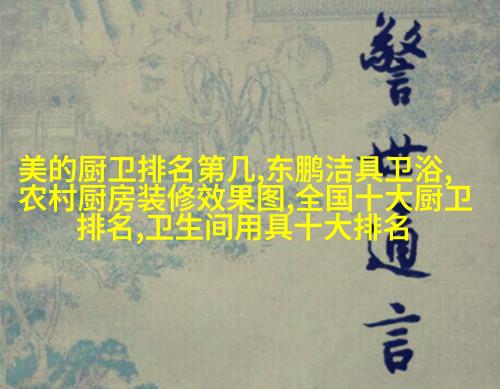 美的厨卫排名第几,东鹏洁具卫浴,
农村厨房装修效果图,全国十大厨卫
排名,卫生间用具十大排名
警世通言